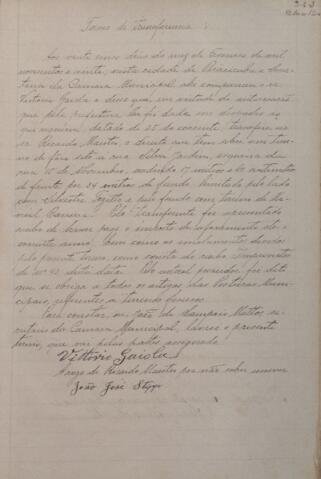 Termo de Transferencia:
Aos vinte e seis dias do mez de Fevereiro de mil
novecentos e vinte, nesta cidade de Piracicaba e Secre-
taria da Camara Municipal, ahi compareceu o sr.
Vittorio e disse que, em virtude da autorisação
que pela prefeitura lhe foi dada em despacho ao
seu requerimento, datado de 25 do corrente, transfere ao
sr. Ricardo o direito que tem sobre um terre-
no de fóro sito a rua Silva Jardim, esquina da
rua 15 de Novembro, medindo 17 metros e 60 centimetros
de frente por 34 metros de fundo, limitado pelo lado
com Silvestre e pelo fundo com terreno de
. Pelo transferente foi apresentado
recibo de haver pago o imposto de aforamento do
corrente anno, bem como os emolumentos devidos
pelo presente termo, como consta do recibo
de nº 93 desta data. Pelo actual possuidor foi dito
que se obriga a todos os artigos das Posturas Muni-
cipaes referentes a terrenos foreiros.
Para constar, eu João de Sampaio Mattos, se-
cretario da Camara Municipal, lavrei o presente
termo, que vai pelas partes assignado.
Vittorio
A rogo de Ricardo por não saber escrever
João José